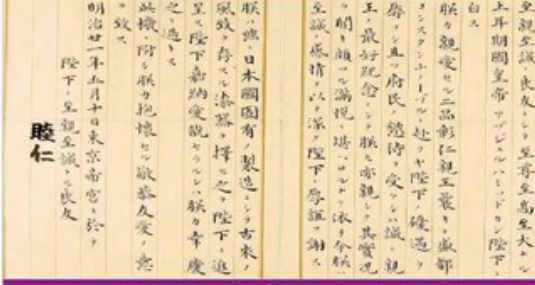 至親至誠ノ良友ニシテ至尊至高至大ナル
土耳期國皇帝アブジュルハミッドカン陛下ニ
白ス
朕カ親愛セル二品彰仁親王曩キニ徽都
コンスタンチノープルニ赴クヤ陛下ノ優遇ヲ
辱シ且ツ府民ノ懇待ヲ受ケシハ誠ニ親
王ノ最好紀念ニシテ朕モ亦親シク其實況
ヲ聞キ顧ル滿悦ニ堪ヘサルナリ依テ今朕ハ
至誠ノ感情ヲ以テ深ク陛下ノ厚誼ヲ謝ス
朕ハ茲ニ日本國固有ノ製造ニシテ古來ノ
風致ヲ存スル漆器ヲ擇ヒ之ヲ陛下ニ進
呈ス陛下嘉納愛翫セラルレハ朕カ幸慶
之ニ過キス
此機ニ附シ朕カ抱懷セル敬恭友愛ノ意
ヲ致ス
明治廿一年五月十日東京帝宮ニ於テ
陛下ノ至親至誠ナル良友
睦仁